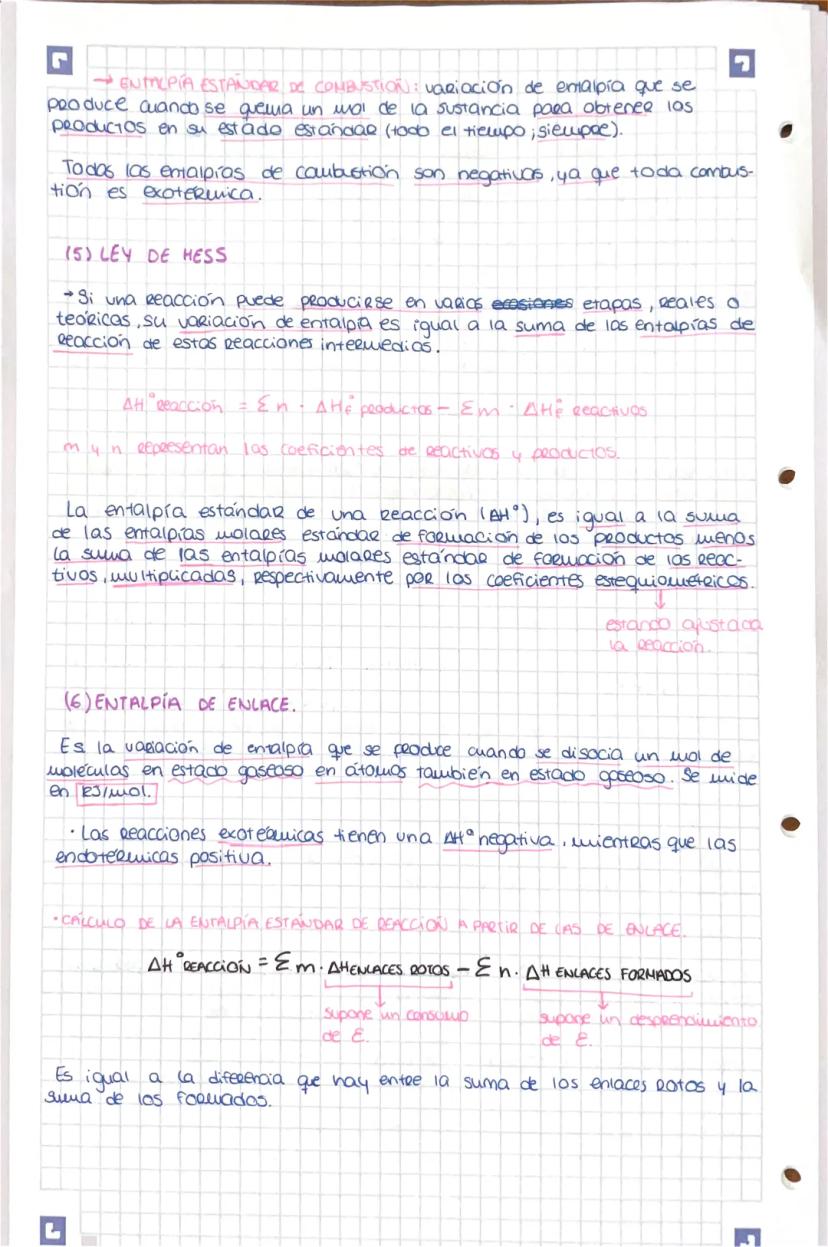 → ENTALPÍA ESTÁNDAR DE COMBUSTIÓN: variación de entalpía que se
produce cuando se quema un mol de la sustancia para obtener los
productos en su estado estándar (todo el tiempo; siempre).
Todas las entalpías de combustión son negativas, ya que toda combus-
tión es exotérmica.
(5) LEY DE HESS
→ Si una reacción puede producirse en varias ecasiones etapas, reales o
teóricas, su variación de entalpía es igual a la suma de las entalpías de
reacción de estas reacciones intermedias.
ΔH° reacción = Σ n · ΔHf° productos - Σ m · ΔHf° reactivos
m y n representan los coeficientes de reactivos y productos.
La entalpía estándar de una reacción (ΔH°), es igual a la suma
de las entalpías molares estándar de formación de los productos menos
la suma de las entalpías molares estándar de formación de los reac-
tivos, multiplicadas, respectivamente por los coeficientes estequiométricos.
↓
estando ajustada
la reacción.
(6) ENTALPÍA DE ENLACE.
Es la variación de entalpía que se produce cuando se disocia un mol de
moléculas en estado gaseoso en átomos también en estado gaseoso. Se mide
en KJ/mol.
· Las reacciones exotérmicas tienen una ΔH° negativa, mientras que las
endotérmicas positiva.
· CÁLCULO DE LA ENTALPÍA ESTÁNDAR DE REACCIÓN A PARTIR DE LAS DE ENLACE.
ΔH° REACCIÓN = Σ m · ΔH ENLACES ROTOS - Σ n · ΔH ENLACES FORMADOS
supone un consumo
de E.
supone un desprendimiento
de E.
Es igual a la diferencia que hay entre la suma de los enlaces rotos y la
suma de los formados.